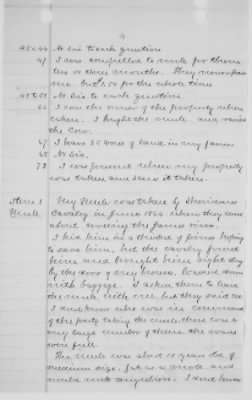 4
45 & 46 No sir to each question
47 I was compelled to work for them
two or three months. They never paid
me but $2.50 for the whole time
No sir to each question
66 I was the owner of the property when
taken. I bought the mule and raised
the Cow.
67 I have 30 acres of land in my farm
68 No sir.
72 I was present when my property
was taken and saw it taken.
Item 1 My Mule was taken by Sheridans
Mule Cavalry in June 1864 when they were
about crossing the James river.
I hid him in a thicket of pines trying
to save him, but the cavalry found
him and brought him right along
by the door of my house, loaded down
with baggage. I asked them to leave
the mule with me, but they said no
I dont know who was in command
of the party taking the mule there was a
very large number of them the roads
were full.
The mule was about 10 years old of
medium size, fat as a mole and
would work anywhere. I dont know